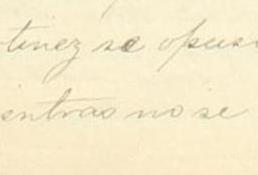 tinez se opuso
entras no se